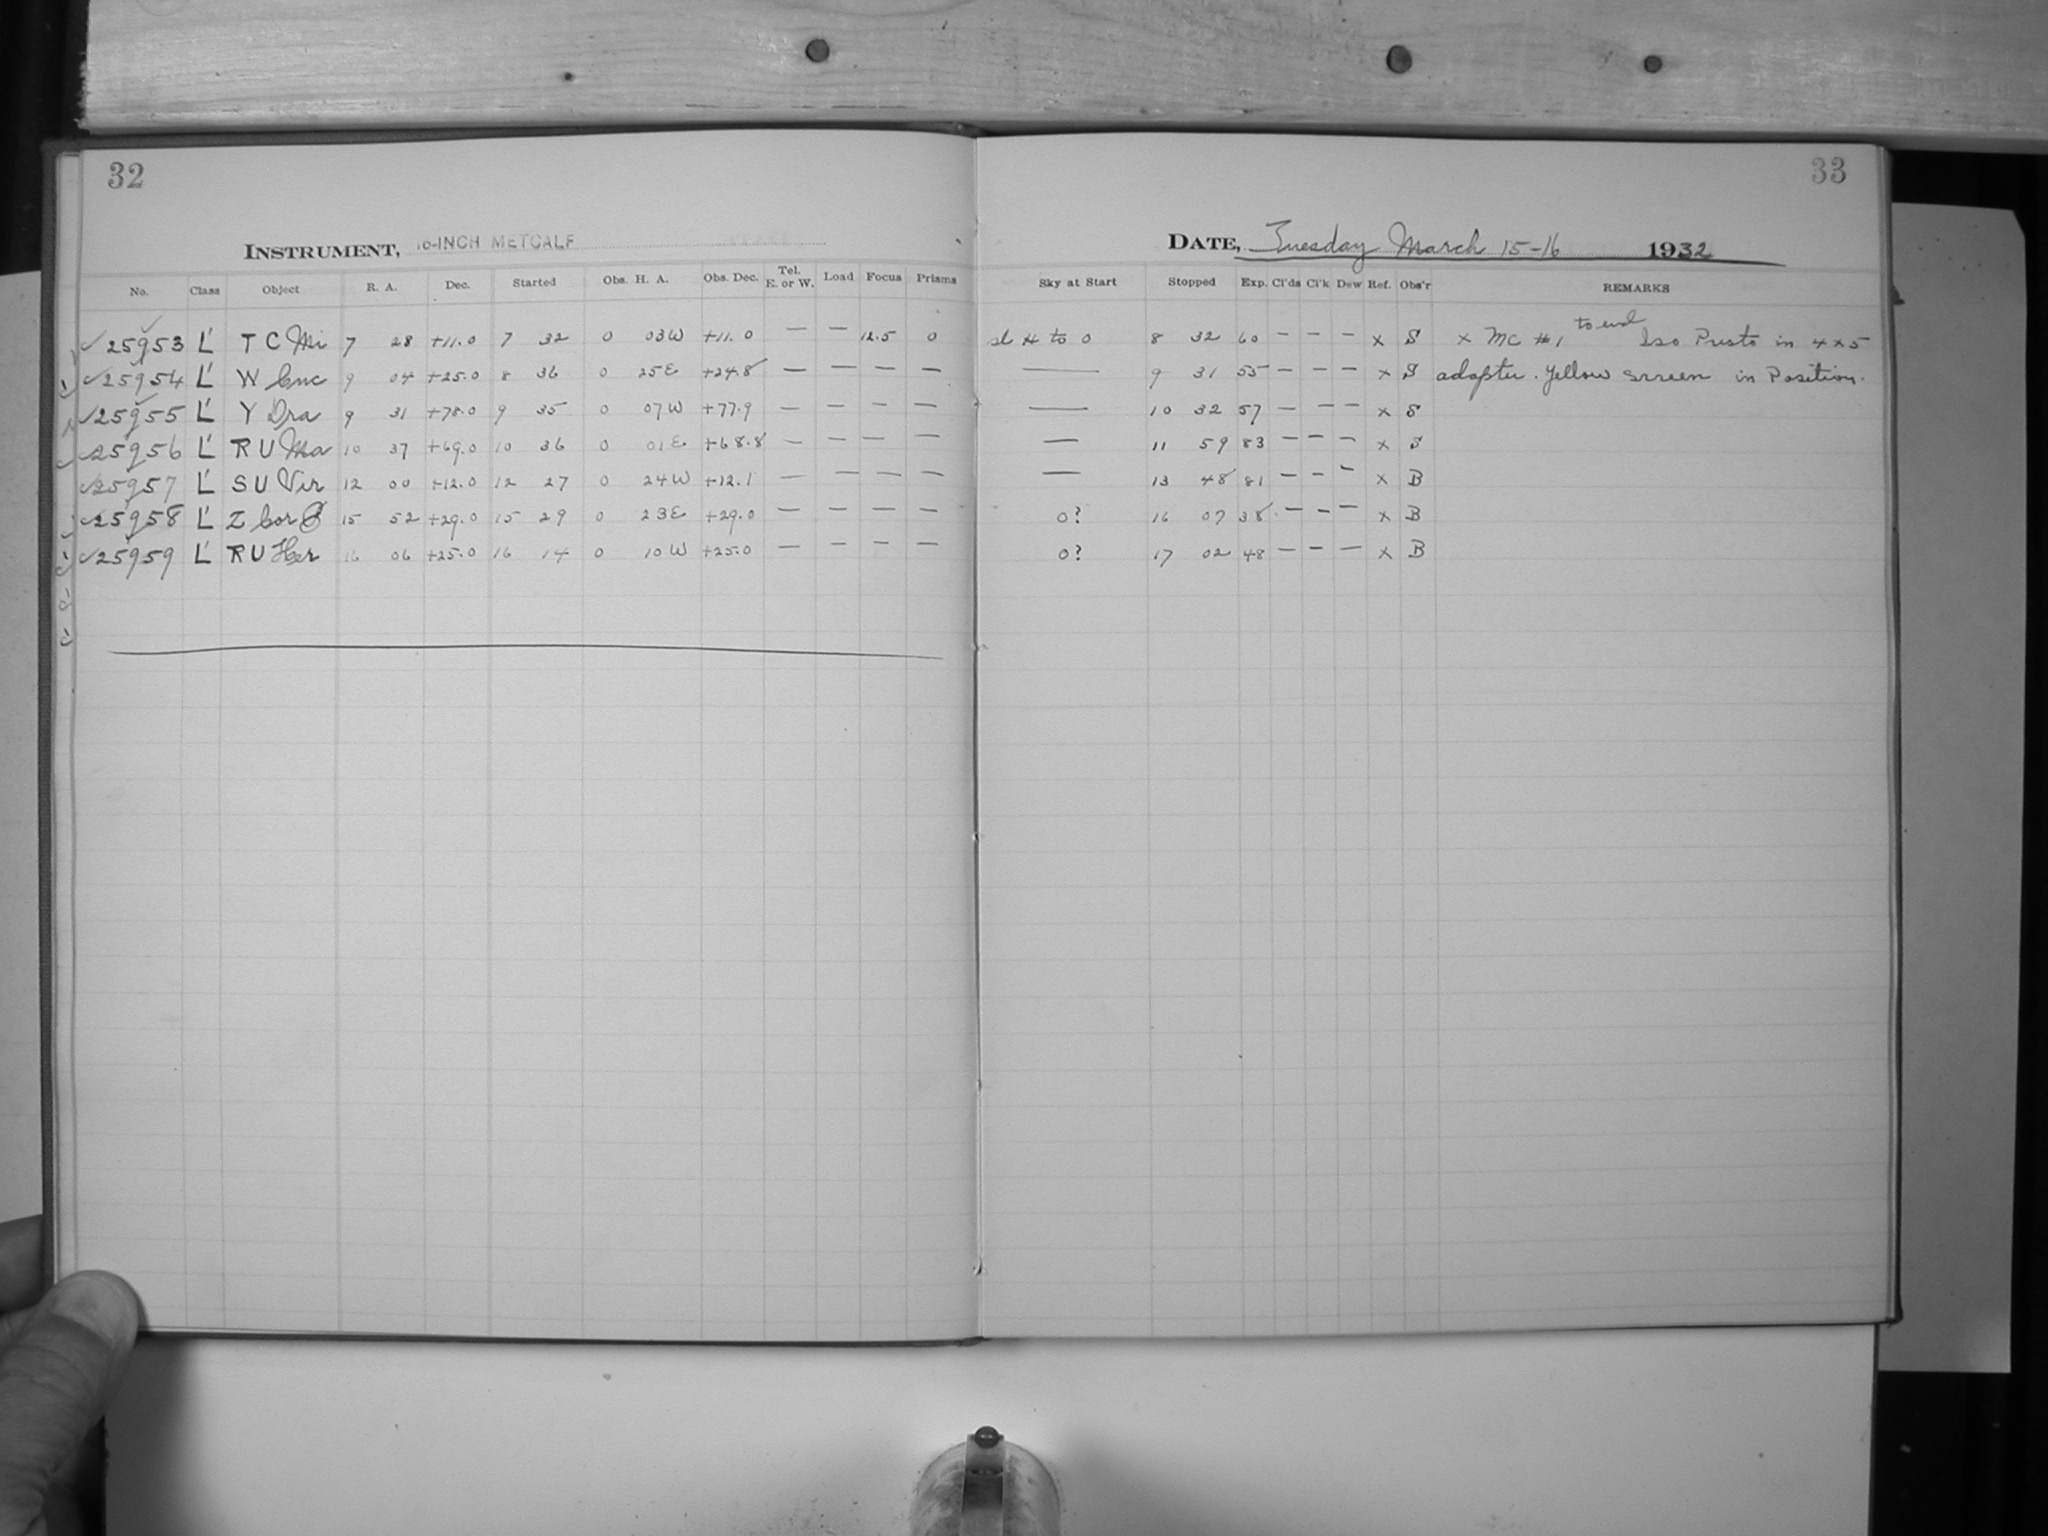 32
INSTRUMENT, 16-INCH METCALF
No. Class Object R. A. Dec. Started Obs. H. A. Obs. Dec. Tel. E. or W. Load Focus Prisms
25953 L' T C Mi 7 28 +11.0 7 32 0 03W +11.0 — — 12.5 0
25954 L' W Cnc 9 04 +25.0 8 36 0 25E +24.8 — — — —
25955 L' Y Dra 9 31 +78.0 9 35 0 07W +77.9 — — — —
25956 L' R U Ma 10 37 +69.0 10 36 0 01E +68.8 — — — —
25957 L' S U Vir 12 00 +12.0 12 27 0 24W +12.1 — — — —
25958 L' Z Cor B 15 52 +29.0 15 29 0 23E +29.0 — — — —
25959 L' R U Her 16 06 +25.0 16 14 0 10W +25.0 — — — —
33
DATE, Tuesday March 15-16 1932
Sky at Start Stopped Exp. Cl'ds Cl'k Dew Ref. Obs'r REMARKS
sl H to 0 8 32 60 — — — x S x MC #1 to end Iso Presto in 4x5
— 9 31 55 — — — x S adapter. Yellow screen in Position.
— 10 32 57 — — — x S
— 11 59 83 — — — x S
— 13 48 81 — — — x B
0? 16 07 38 — — — x B
0? 17 02 48 — — — x B